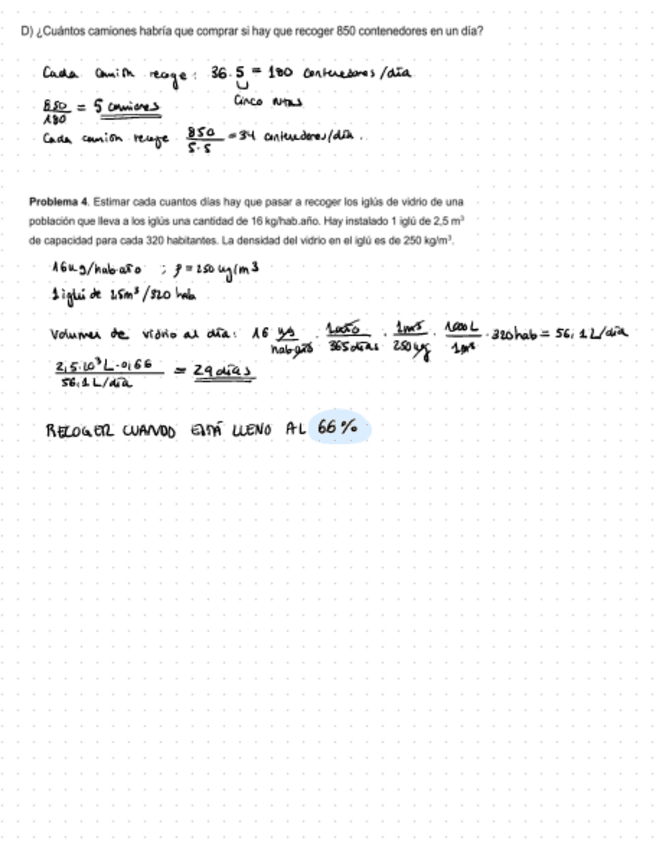 D) ¿Cuántos camiones habría que comprar si hay que recoger 850 contenedores en un día?
Cada camión recoge: 36 · 5 = 180 contenedores/día
Cinco rutas
850/180 = 5 camiones
Cada camión recoge 850/5·5 = 34 contenedores/día.
Problema 4. Estimar cada cuantos días hay que pasar a recoger los iglús de vidrio de una
población que lleva a los iglús una cantidad de 16 kg/hab.año. Hay instalado 1 iglú de 2,5 m³
de capacidad para cada 320 habitantes. La densidad del vidrio en el iglú es de 250 kg/m³.
16kg/hab año ; ρ = 250 kg/m3
1 iglú de 2,5m³/320 hab
Volumen de vidrio al día: 16 kg/hab·año · 1año/365días · 1m³/250kg · 1000L/1m³ · 320hab = 56,1L/día
2,5·10³L·0,66/56,1L/día = 29 días
RECOGER CUANDO ESTÁ LLENO AL 66%